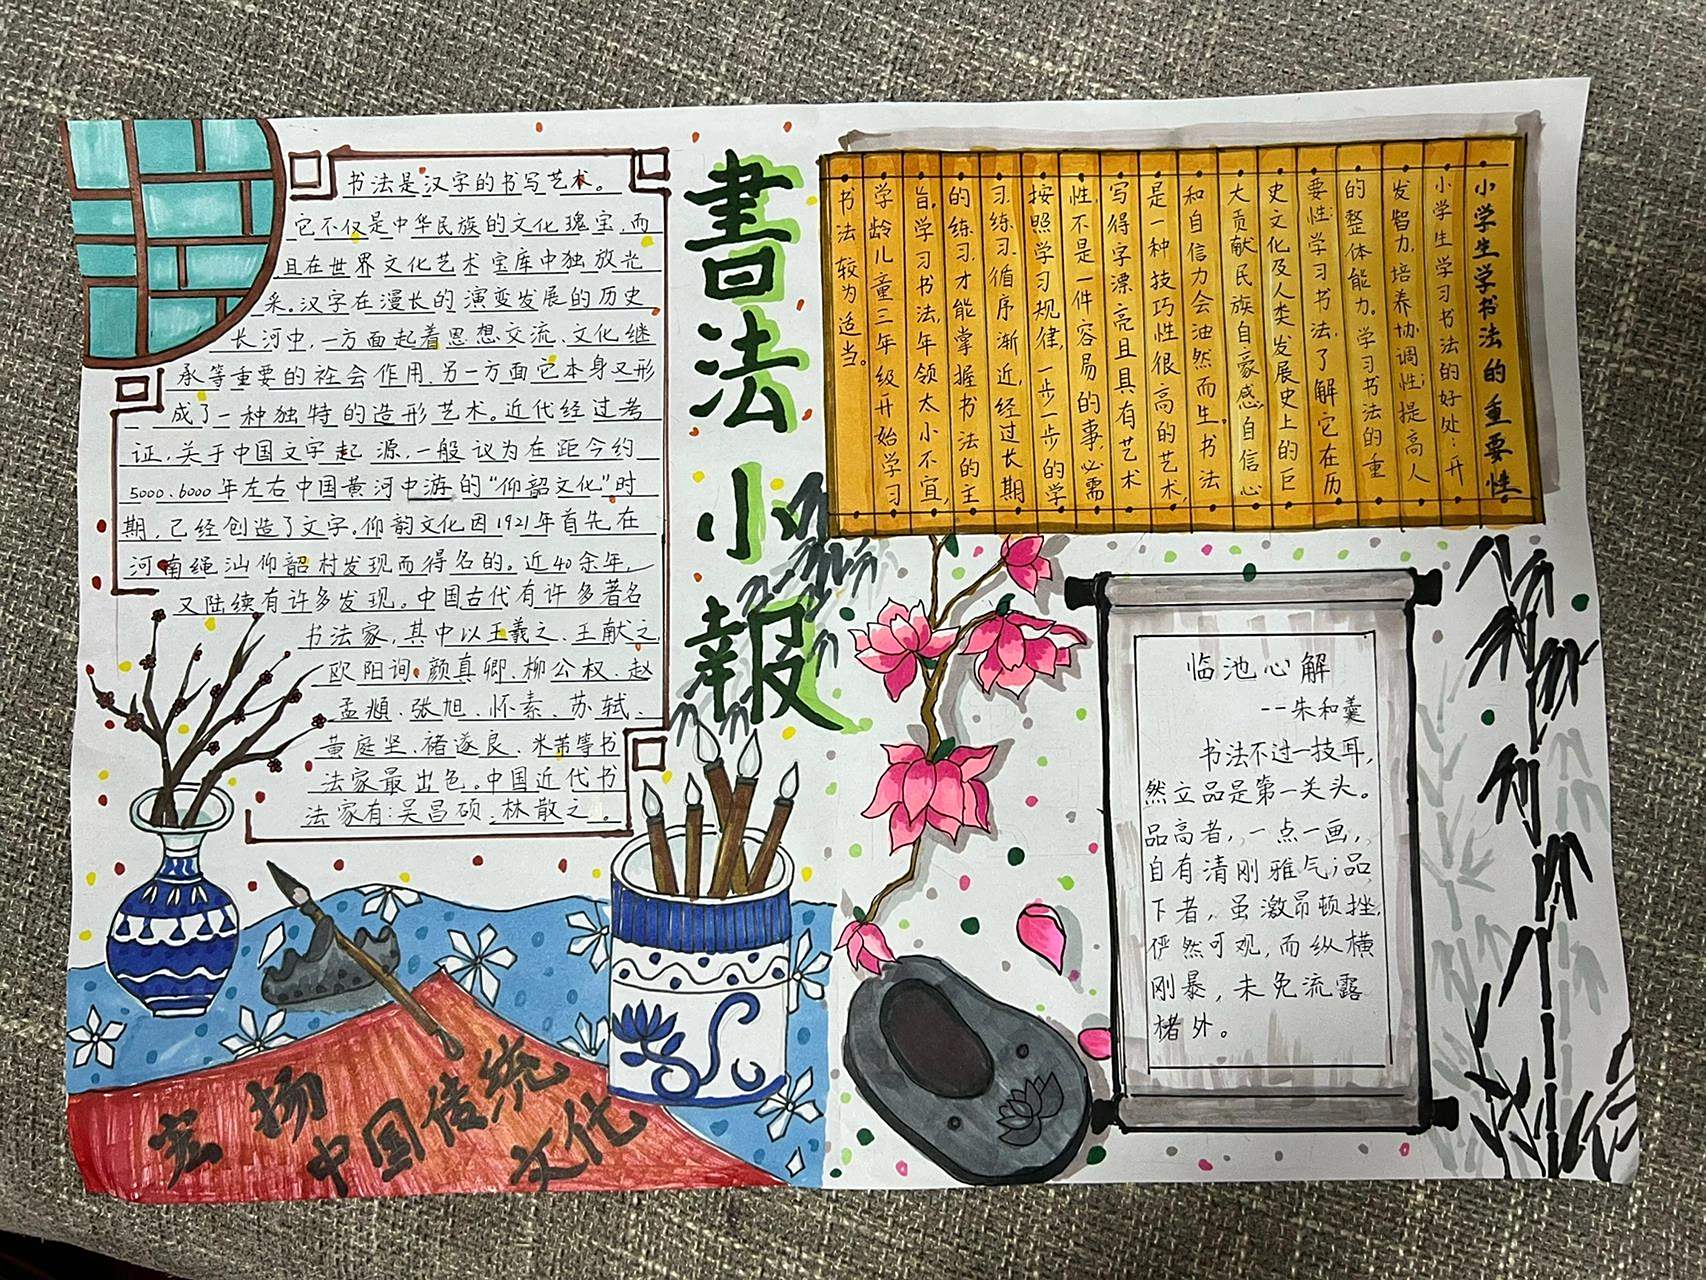 書法小報
书法是汉字的书写艺术。
它不仅是中华民族的文化瑰宝,而
且在世界文化艺术宝库中独放光
采。汉字在漫长的演变发展的历史
长河中,一方面起着思想交流、文化继
承等重要的社会作用,另一方面它本身又形
成了一种独特的造形艺术。近代经过考
证,关于中国文字起源,一般议为在距今约
5000、6000年左右中国黄河中游的“仰韶文化”时
期,已经创造了文字。仰韵文化因1921年首先在
河南绳汕仰韶村发现而得名的。近40余年,
又陆续有许多发现。中国古代有许多著名
书法家,其中以王羲之、王献之
欧阳询、颜真卿、柳公权、赵
孟頫、张旭、怀素、苏轼、
黄庭坚、褚遂良、米芾等书
法家最出色。中国近代书
法家有:吴昌硕、林散之。
小学生学书法的重要性
小学生学习书法的好处:开
发智力,培养协调性;提高人
的整体能力。学习书法的重
要性:学习书法,了解它在历
史文化及人类发展史上的巨
大贡献,民族自豪感,自信心
和自信力会油然而生。书法
是一种技巧性很高的艺术,
写得字漂亮且具有艺术
性,不是一件容易的事,必需
按照学习规律,一步一步的学
习练习,循序渐近,经过长期
的练习,才能掌握书法的主
旨,学习书法,年领太小不宜,
学龄儿童三年级开始学习
书法较为适当。
临池心解
--朱和羹
书法不过一技耳,
然立品是第一关头。
品高者,一点一画,
自有清刚雅气;品
下者,虽激昂顿挫,
俨然可观,而纵横
刚暴,未免流露
楮外。
宏扬
中国传统
文化